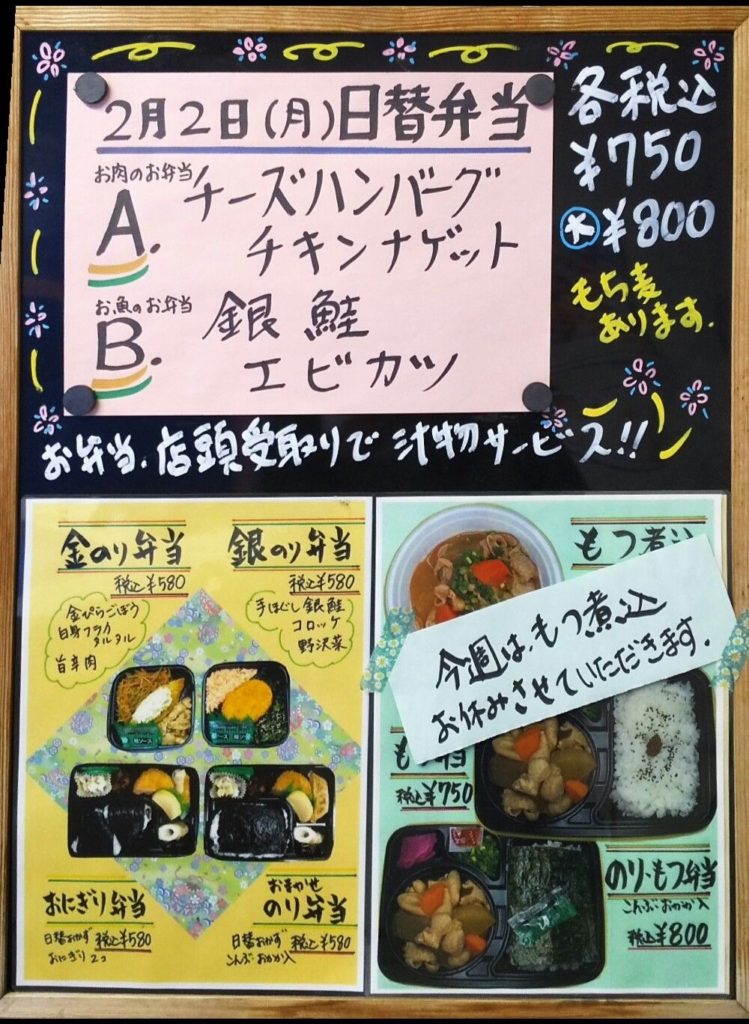 2月2日(月)日替弁当
お肉のお弁当
A.
チーズハンバーグ
チキンナゲット
お魚のお弁当
B.
銀鮭
エビカツ
各税込
¥750
大¥800
もち麦
あります.
お弁当、店頭受取りで汁物サービス!!
金のり弁当
税込¥580
金ぴらごぼう
白身フライ
タルタル
旨辛肉
銀のり弁当
税込¥580
手ほぐし銀鮭
コロッケ
野沢菜
おにぎり弁当
日替おかず
おにぎり2コ
税込¥580
おまかせ
のり弁当
日替おかず
こんぶおかか入
税込¥580
もつ煮込
今週は、もつ煮込
お休みさせていただきます.
税込¥750
のり・もつ弁当
こんぶおかか入
税込¥800